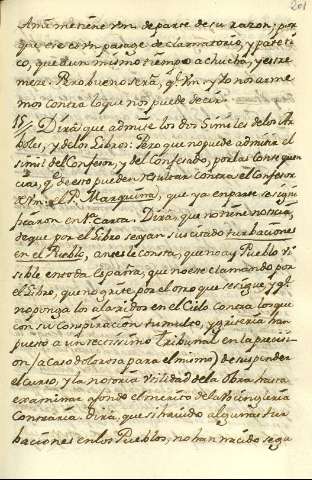 201
A mi me tiene Vm. de parte de su razon; por
que, ese es vn pasage declamatorio, y pateti
co, que à un mismo tiempo achucha, y estre
meze. Pero bueno será, qe. Vm. y Yo nos arme
mos contra lo que nos puede decir.
15// Dirà, que admite los dos Simîles de los Ar
boles, y de los Libros: Pero que no puede admitir el
simil del Confesor, y del Confesado, por las Conseqüen
cias, qe. de esto pueden resultar contra el Confesor
de Vm. el P. Marquina, que ya en parte se signi
ficaron en 1ª Carta. Dirà, que no tiene noticia,
de que por el Libro se han suscitado turbaciones
en el Pueblo, antes le consta, que no ay Pueblo vi
sible en toda España, que no esté clamando por
el Libro, que no grite por el otro que se sigue, y qe.
no ponga los alaridos en el Cielo contra los que
con su conspiracion, tumulto, y griteria han
puesto a un rectissimo Tribunal en la precisi
on (acaso dolorosa para el mismo) de suspender
el curso, y la notoria vtilidad de la Obra hasta
examinar afondo el merito de la bozingleria
Contraria. Dirà, que si ha avido algunas tur
baciones en los Pueblos, no han nacido segu